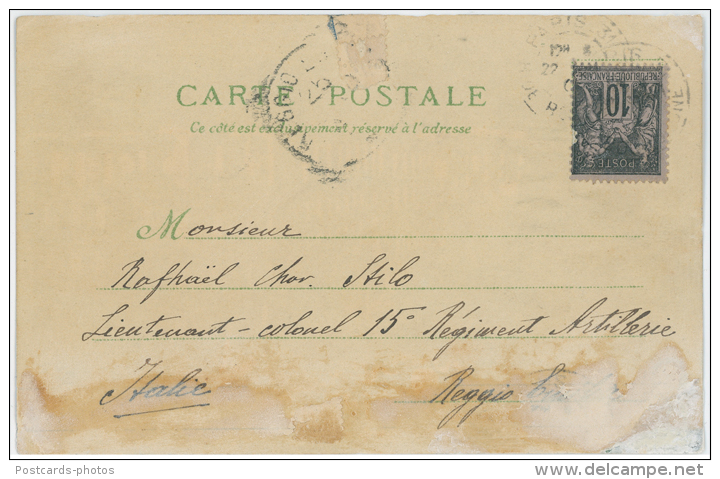 PARIS
22
RÉPUBLIQUE FRANÇAISE
10
POSTE
CARTE POSTALE
Ce côté est exclusivement réservé à l'adresse
Monsieur
Raphaël Chev. Stilo
Lieutenant-colonel 15° Régiment Artillerie
Italie Reggio
Postcards-photos
delcampe.net